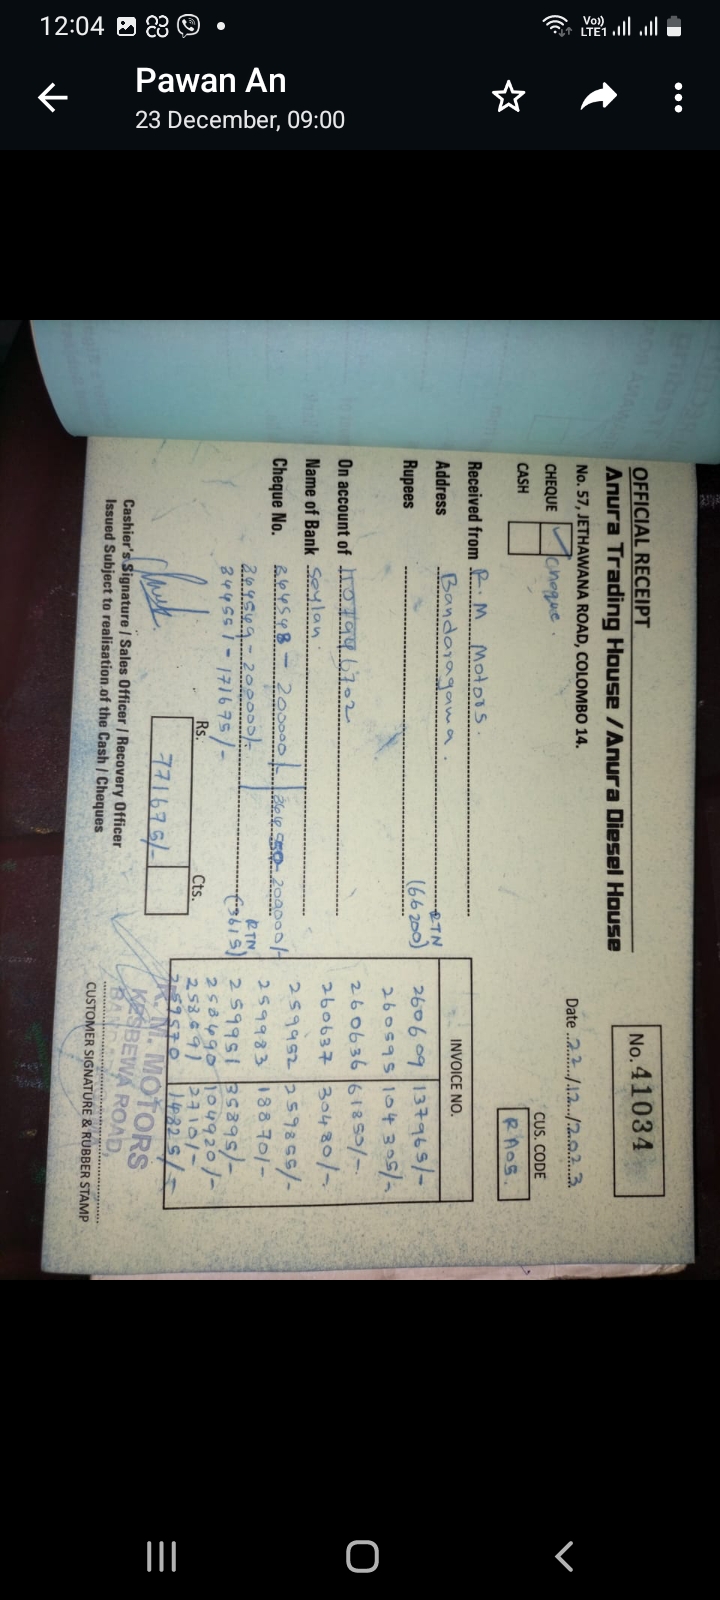 12:04
Vo))
LTE1
Pawan An
23 December, 09:00
OFFICIAL RECEIPT
Anura Trading House / Anura Diesel House
No. 57, JETHAWANA ROAD, COLOMBO 14.
No. 41034
Date 22/12/2023
CHEQUE cheque.
CASH
CUS. CODE
RA05.
Received from R.M Motors.
Address Bandaragama.
Rupees
RTN
(66200)
On account of
Name of Bank Seylan.
Cheque No. 244548 - 200000/-
244549 - 200000/-
244551 - 171675/-
RTN
(3615)
INVOICE NO.
260609 137965/-
260595 104305/-
260636 61850/-
260637 30480/-
259952 259855/-
259983 18870/-
259951 35895/-
258490 104920/-
258591 2710/-
259570 14825/-
Rs. Cts.
771675/-
Cashier's Signature / Sales Officer / Recovery Officer
Issued Subject to realisation of the Cash / Cheques
R. M. MOTORS
KESBEWA ROAD,
CUSTOMER SIGNATURE & RUBBER STAMP